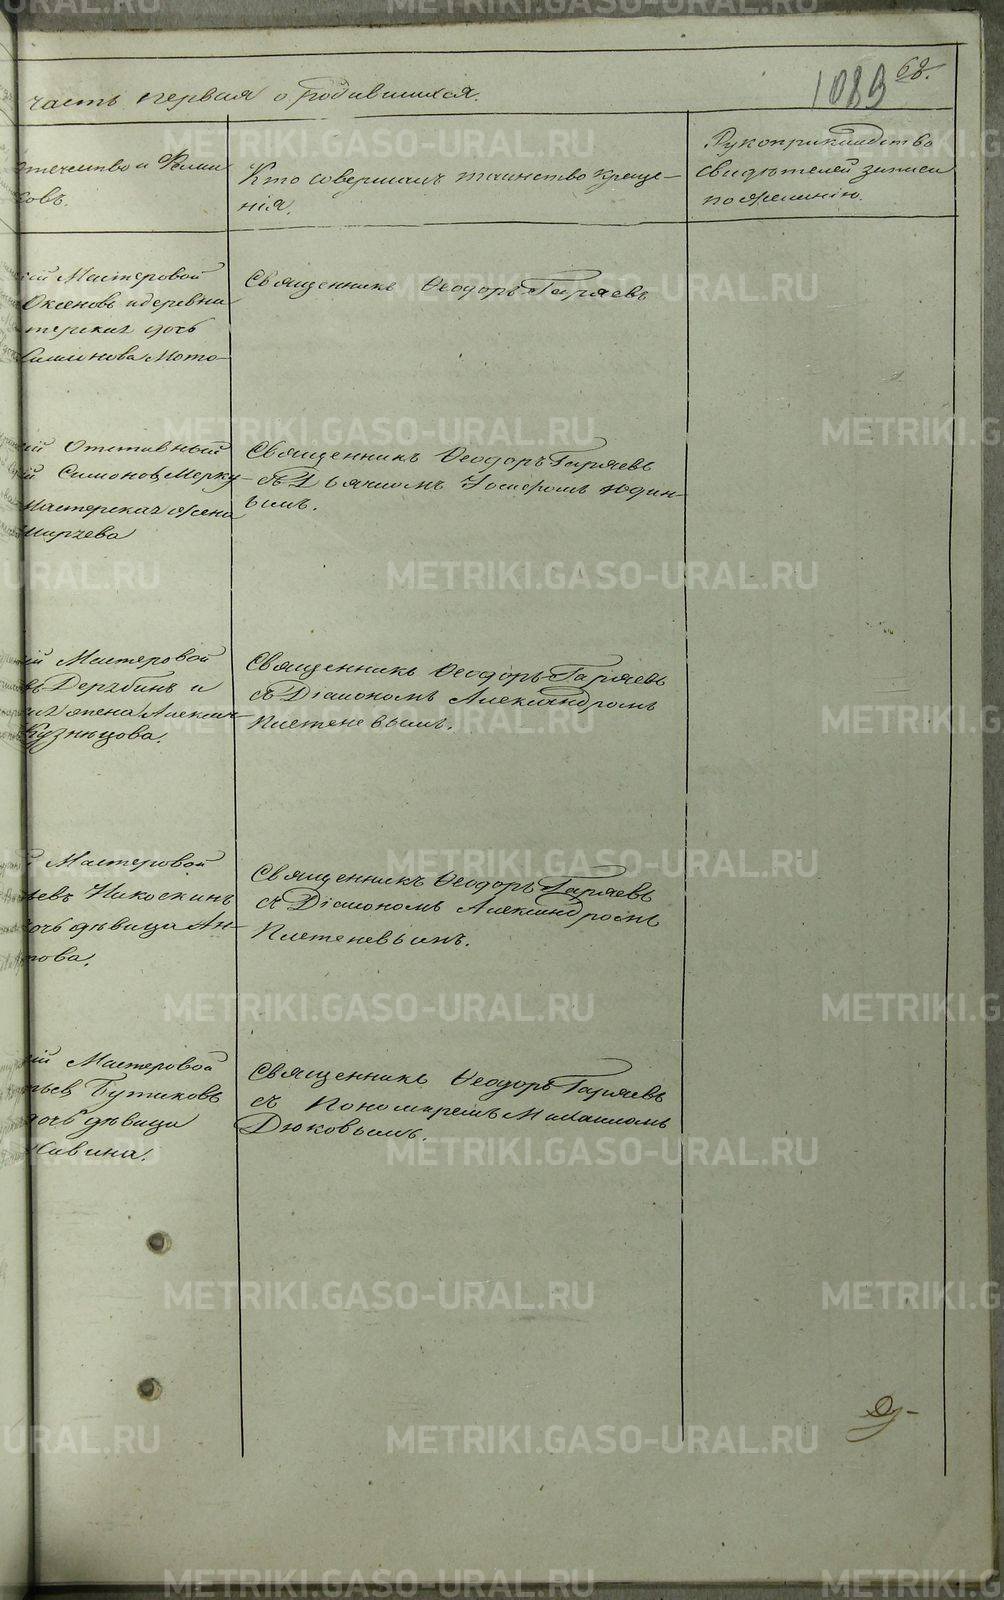 часть первая о родившихся.
1089
68.
отечество и Фами
ковъ.
Кто совершалъ таинство креще-
нія.
Рукоприкладство
свидѣтелей записи
по желанію.
кій Мастеровой
Оксеновъ и деревни
терская дочь
Симонова Мото-
Священникъ Ѳеодоръ Гаряевъ
кій Отставный
й Симонов Мерку-
мастерская жена
Священникъ Ѳеодоръ Гаряевъ
съ Дьячкомъ Юдин-
ымъ.
кій Мастеровой
въ Дерябинъ и
ая жена Алекса-
Кузнецова.
Священникъ Ѳеодоръ Гаряевъ
съ Діакономъ Александромъ
Плетеневымъ.
й Мастеровой
ьевъ Никоскинъ
дочь дѣвица Ан-
това.
Священникъ Ѳеодоръ Гаряевъ
съ Діакономъ Александромъ
Плетеневымъ.
кій Мастеровой
тьев Бутаковъ
дочь дѣвица
Савина.
Священникъ Ѳеодоръ Гаряевъ
съ Пономаремъ Михаиломъ
Дюковымъ.
METRIKI.GASO-URAL.RU